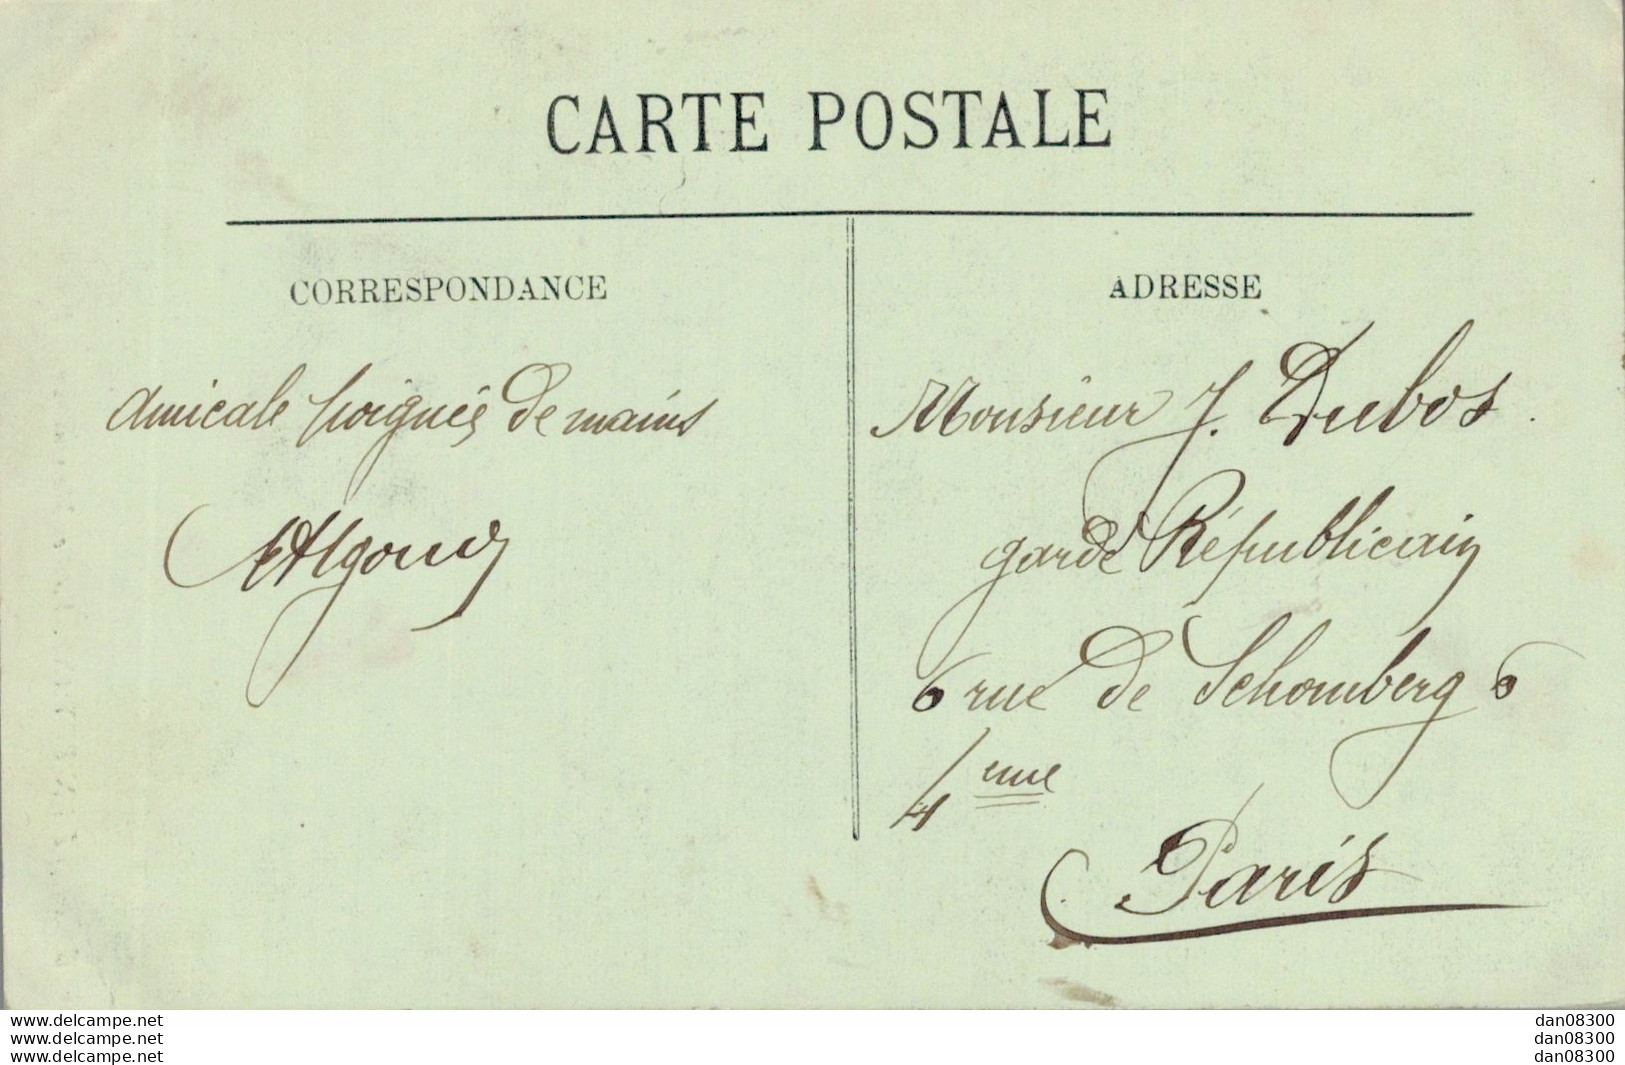 CARTE POSTALE
CORRESPONDANCE
amicale poignés de mains
ADRESSE
Monsieur J. Dubos.
garde Républicain
6 rue de Schomberg 6
4eme
Paris
www.delcampe.net
www.delcampe.net
www.delcampe.net
dan08300
dan08300
dan08300